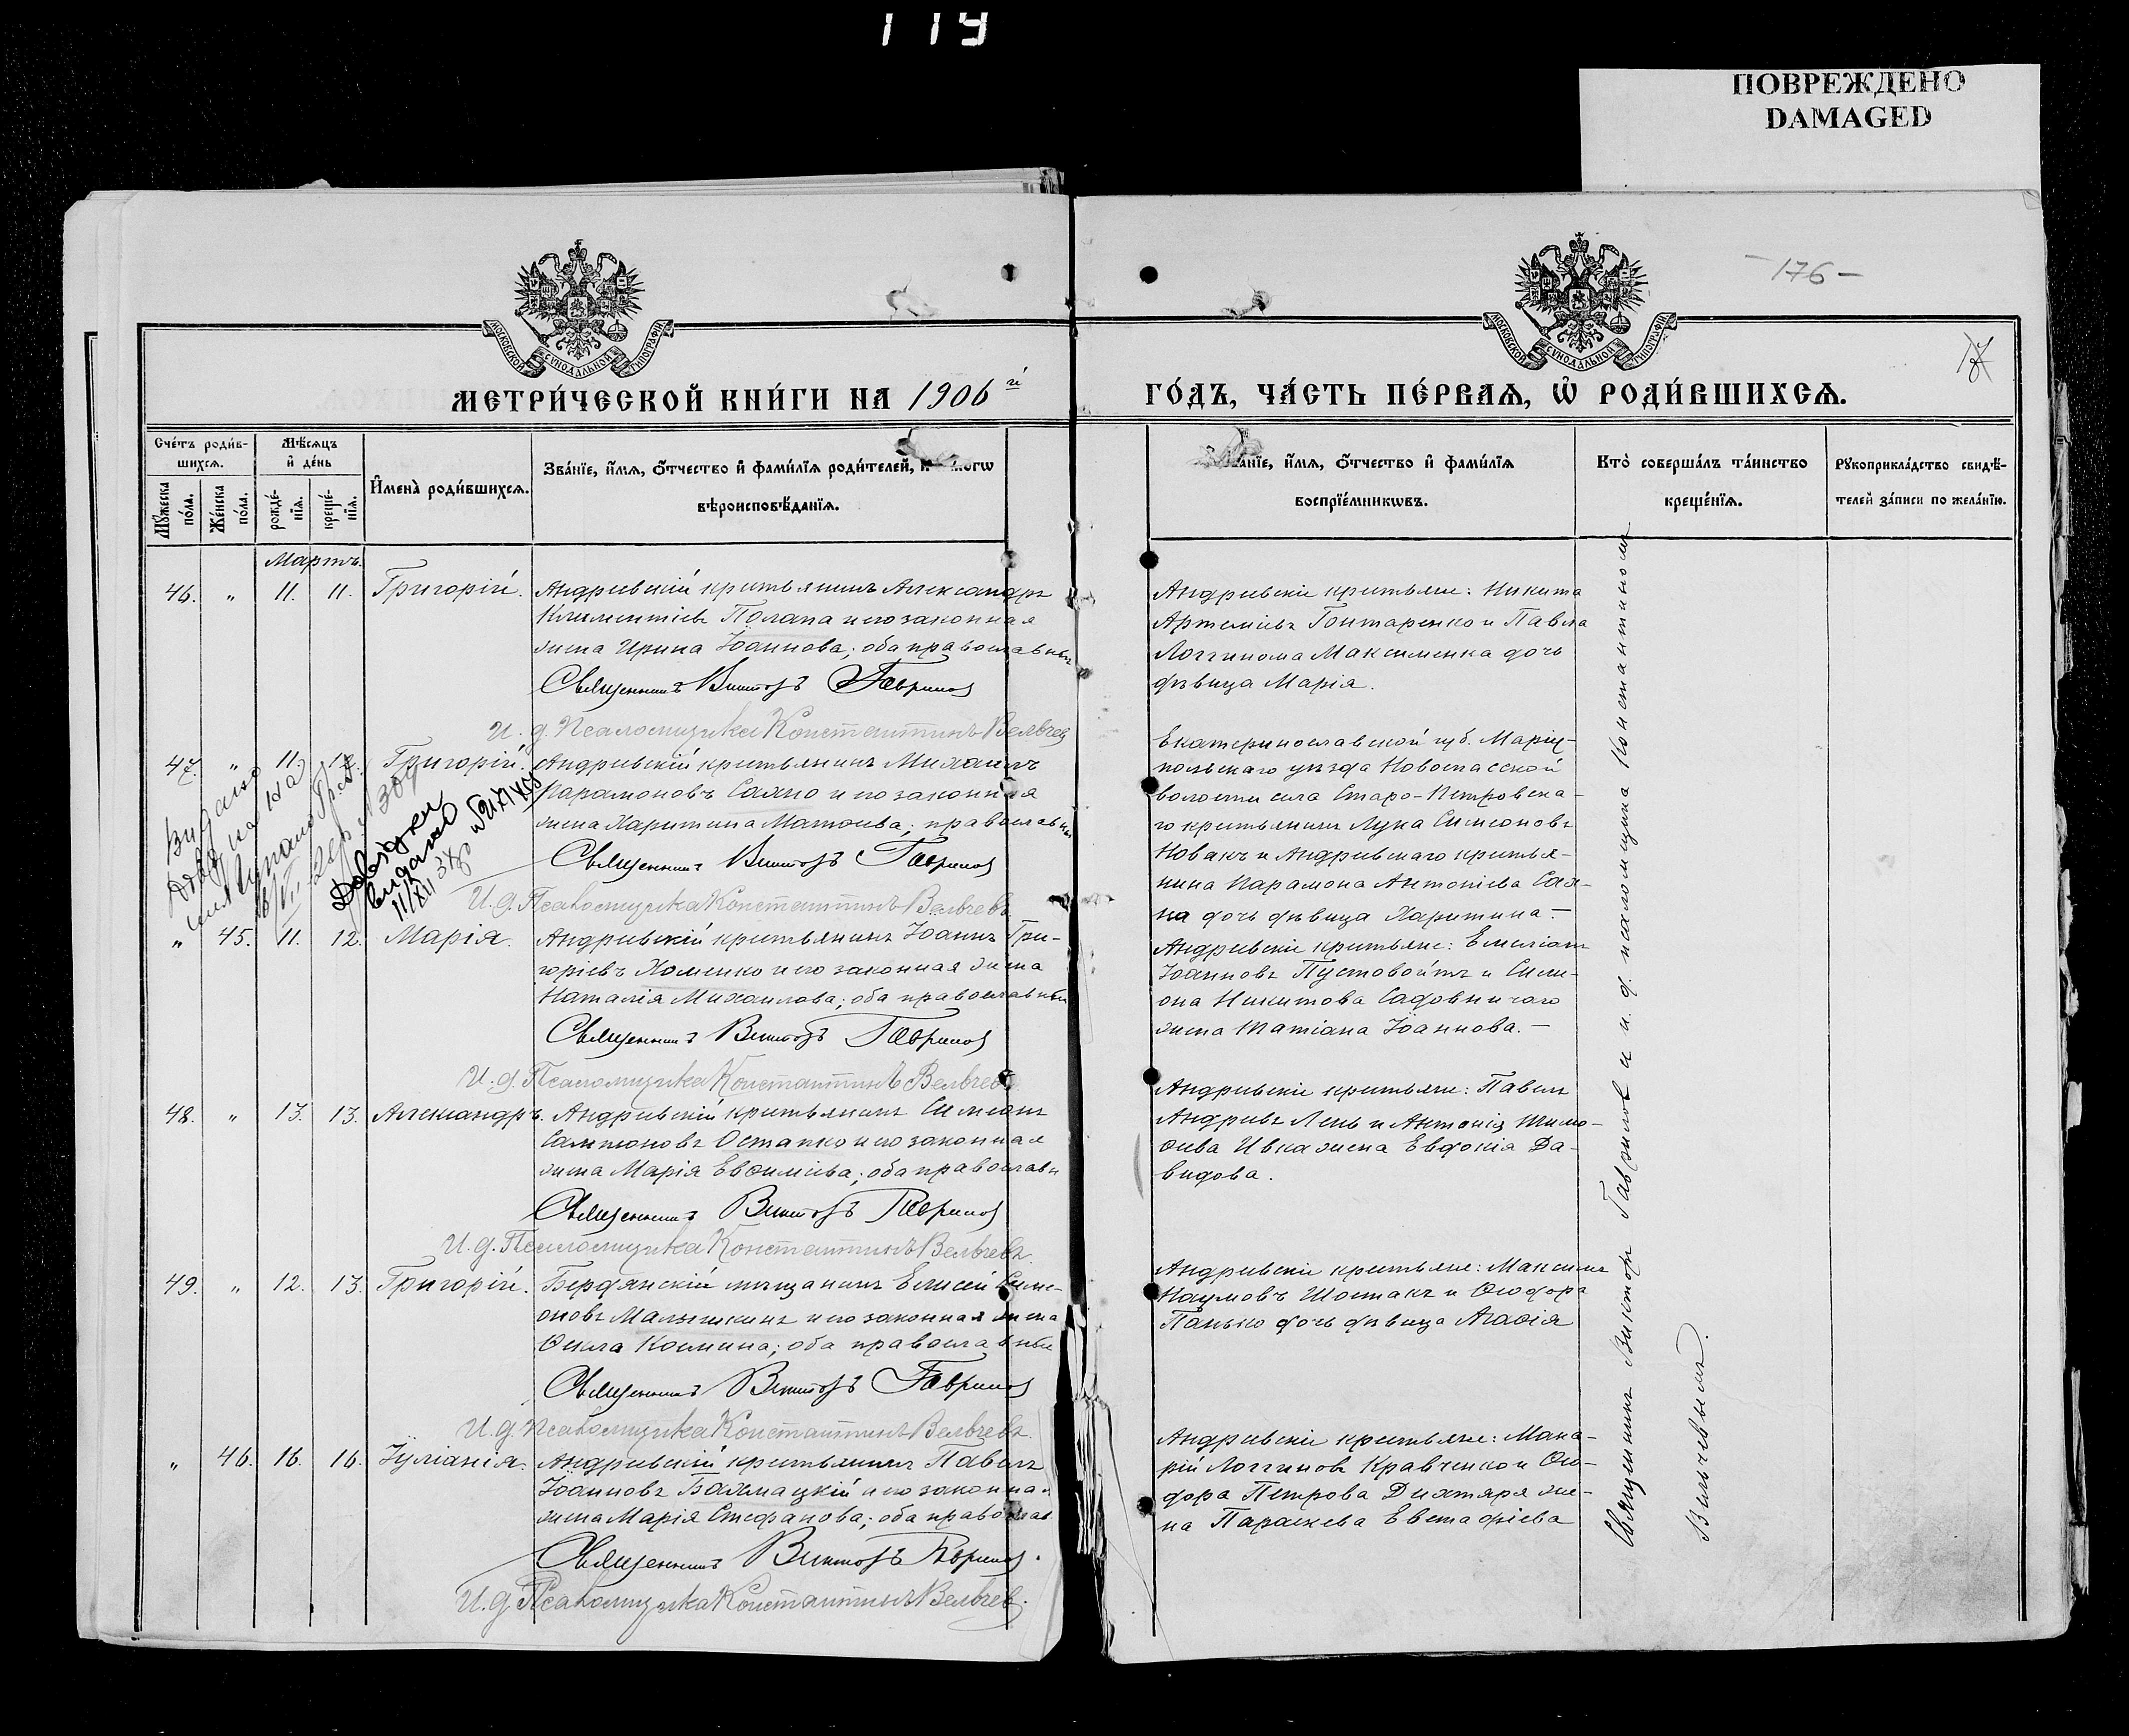 119
ПОВРЕЖДЕНО
DAMAGED
-176-
МОСКОВСКОЙ СѴНОДАЛЬНОЙ ТИПОГРАФІИ
МОСКОВСКОЙ СѴНОДАЛЬНОЙ ТИПОГРАФІИ
17
МЕТРИ́ЧЕСКОЙ КНИ́ГИ НА 1906й
ГО́ДЪ, ЧА́СТЬ ПЕ́РВАѦ, Ѡ҆ РОДИ́ВШИХСѦ.
Сче́тъ роди́в-
шихсѧ.
Мѣ́сѧцъ
и҆ де́нь
И҆мена̀ роди́вшихсѧ.
Зва́нїе, и҆́мѧ, ѻ҆́тчество и҆ фами́лїѧ роди́телей, и҆
вѣроисповѣ́данїѧ.
Мꙋ́жеска по́ла.
Же́нска по́ла.
рожде́нїѧ.
креще́нїѧ.
Зва́нїе, и҆́мѧ, ѻ҆́тчество и҆ фами́лїѧ
воспрїе́мникѡвъ.
Кто̀ соверша́лъ та́инство
креще́нїѧ.
Рꙋкоприкла́дство свидѣ́-
телей за́писи по жела́нїю.
Мартъ.
46. " 11. 11. Григорій. Андреевскій крестьянинъ Александръ
Климентіевъ Полапа и его законная
жена Ирина Іоаннова; оба православные
Священникъ Викторъ Гаврилов
И. д. Псаломщика Константинъ Вельчев
Андреевскіе крестьяне: Никита
Артеміевъ Гонтаренко и Павла
Логгинома Максименка дочь
дѣвица Марія.
47. " 11. 12. Григорій. Андреевскій крестьянинъ Михаилъ
Парамоновъ Саяно и его законная
жена Харитина Матѳеева; православны
Священникъ Викторъ Гаврилов
И. д. Псаломщика Константинъ Вельчевъ.
Видано
Довідки
видано
Екатеринославской губ. Маріу-
польскаго уѣзда Новоспасской
волости села Старо-Петровска-
го крестьянинъ Лука Симеоновъ
Новакъ и Андреевскаго крестья-
нина Парамона Антоніева Сая-
на дочь дѣвица Харитина.—
" 45. 11. 12. Марія. Андреевскій крестьянинъ Іоаннъ Гри-
горіевъ Хоменко и его законная жена
Наталія Михаилова; оба православные
Священникъ Викторъ Гаврилов
И. д. Псаломщика Константинъ Вельчевъ.
Андреевскіе крестьяне: Емиліанъ
Іоанновъ Пустовойтъ и Симе-
она Никитова Садовничаго
жена Татіана Іоаннова.—
48. " 13. 13. Александръ. Андреевскій крестьянинъ Симеонъ
Сампсоновъ Остапко и его законная
жена Марія Евѳиміева; оба православн
Священникъ Викторъ Гаврилов
И. д. Псаломщика Константинъ Вельчевъ.
Андреевскіе крестьяне: Павелъ
Андреевъ Лень и Антонія Тимо-
ѳеева Ивка жена Евдокія Да-
видова.
49. " 12. 13. Григорій. Бердянскій мѣщанинъ Елисей Симе-
оновъ Малышкинъ и его законная жена
Ѳекла Космина; оба православные
Священникъ Викторъ Гаврилов
И. д. Псаломщика Константинъ Вельчевъ.
Андреевскіе крестьяне: Максимъ
Наумовъ Шостакъ и Ѳеодора
Панько дочь дѣвица Агаѳія
" 46. 16. 16. Іуліанія. Андреевскій крестьянинъ Павелъ
Іоанновъ Балмацкій и его законная
жена Марія Стефанова; оба православ
Священникъ Викторъ Гаврилов.
И. д. Псаломщика Константинъ Вельчев.
Андреевскіе крестьяне: Мака-
рій Логгиновъ Кравченко и Ѳео-
дора Петрова Дихтяря же-
на Параскева Евстафіева
Священникъ Викторъ Гаврилов и и. д. псаломщика Константиномъ
Вельчевымъ.